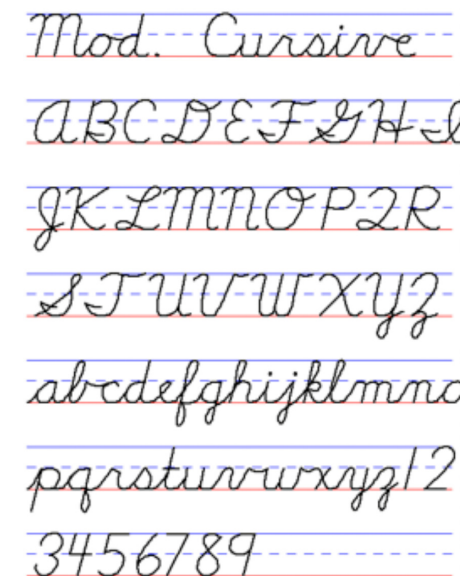 Mod. Cursive
ABCDEFGHI
JKLMNOPQR
STUVWXYZ
abcdefghijklmno
pqrstuvwxyz12
3456789